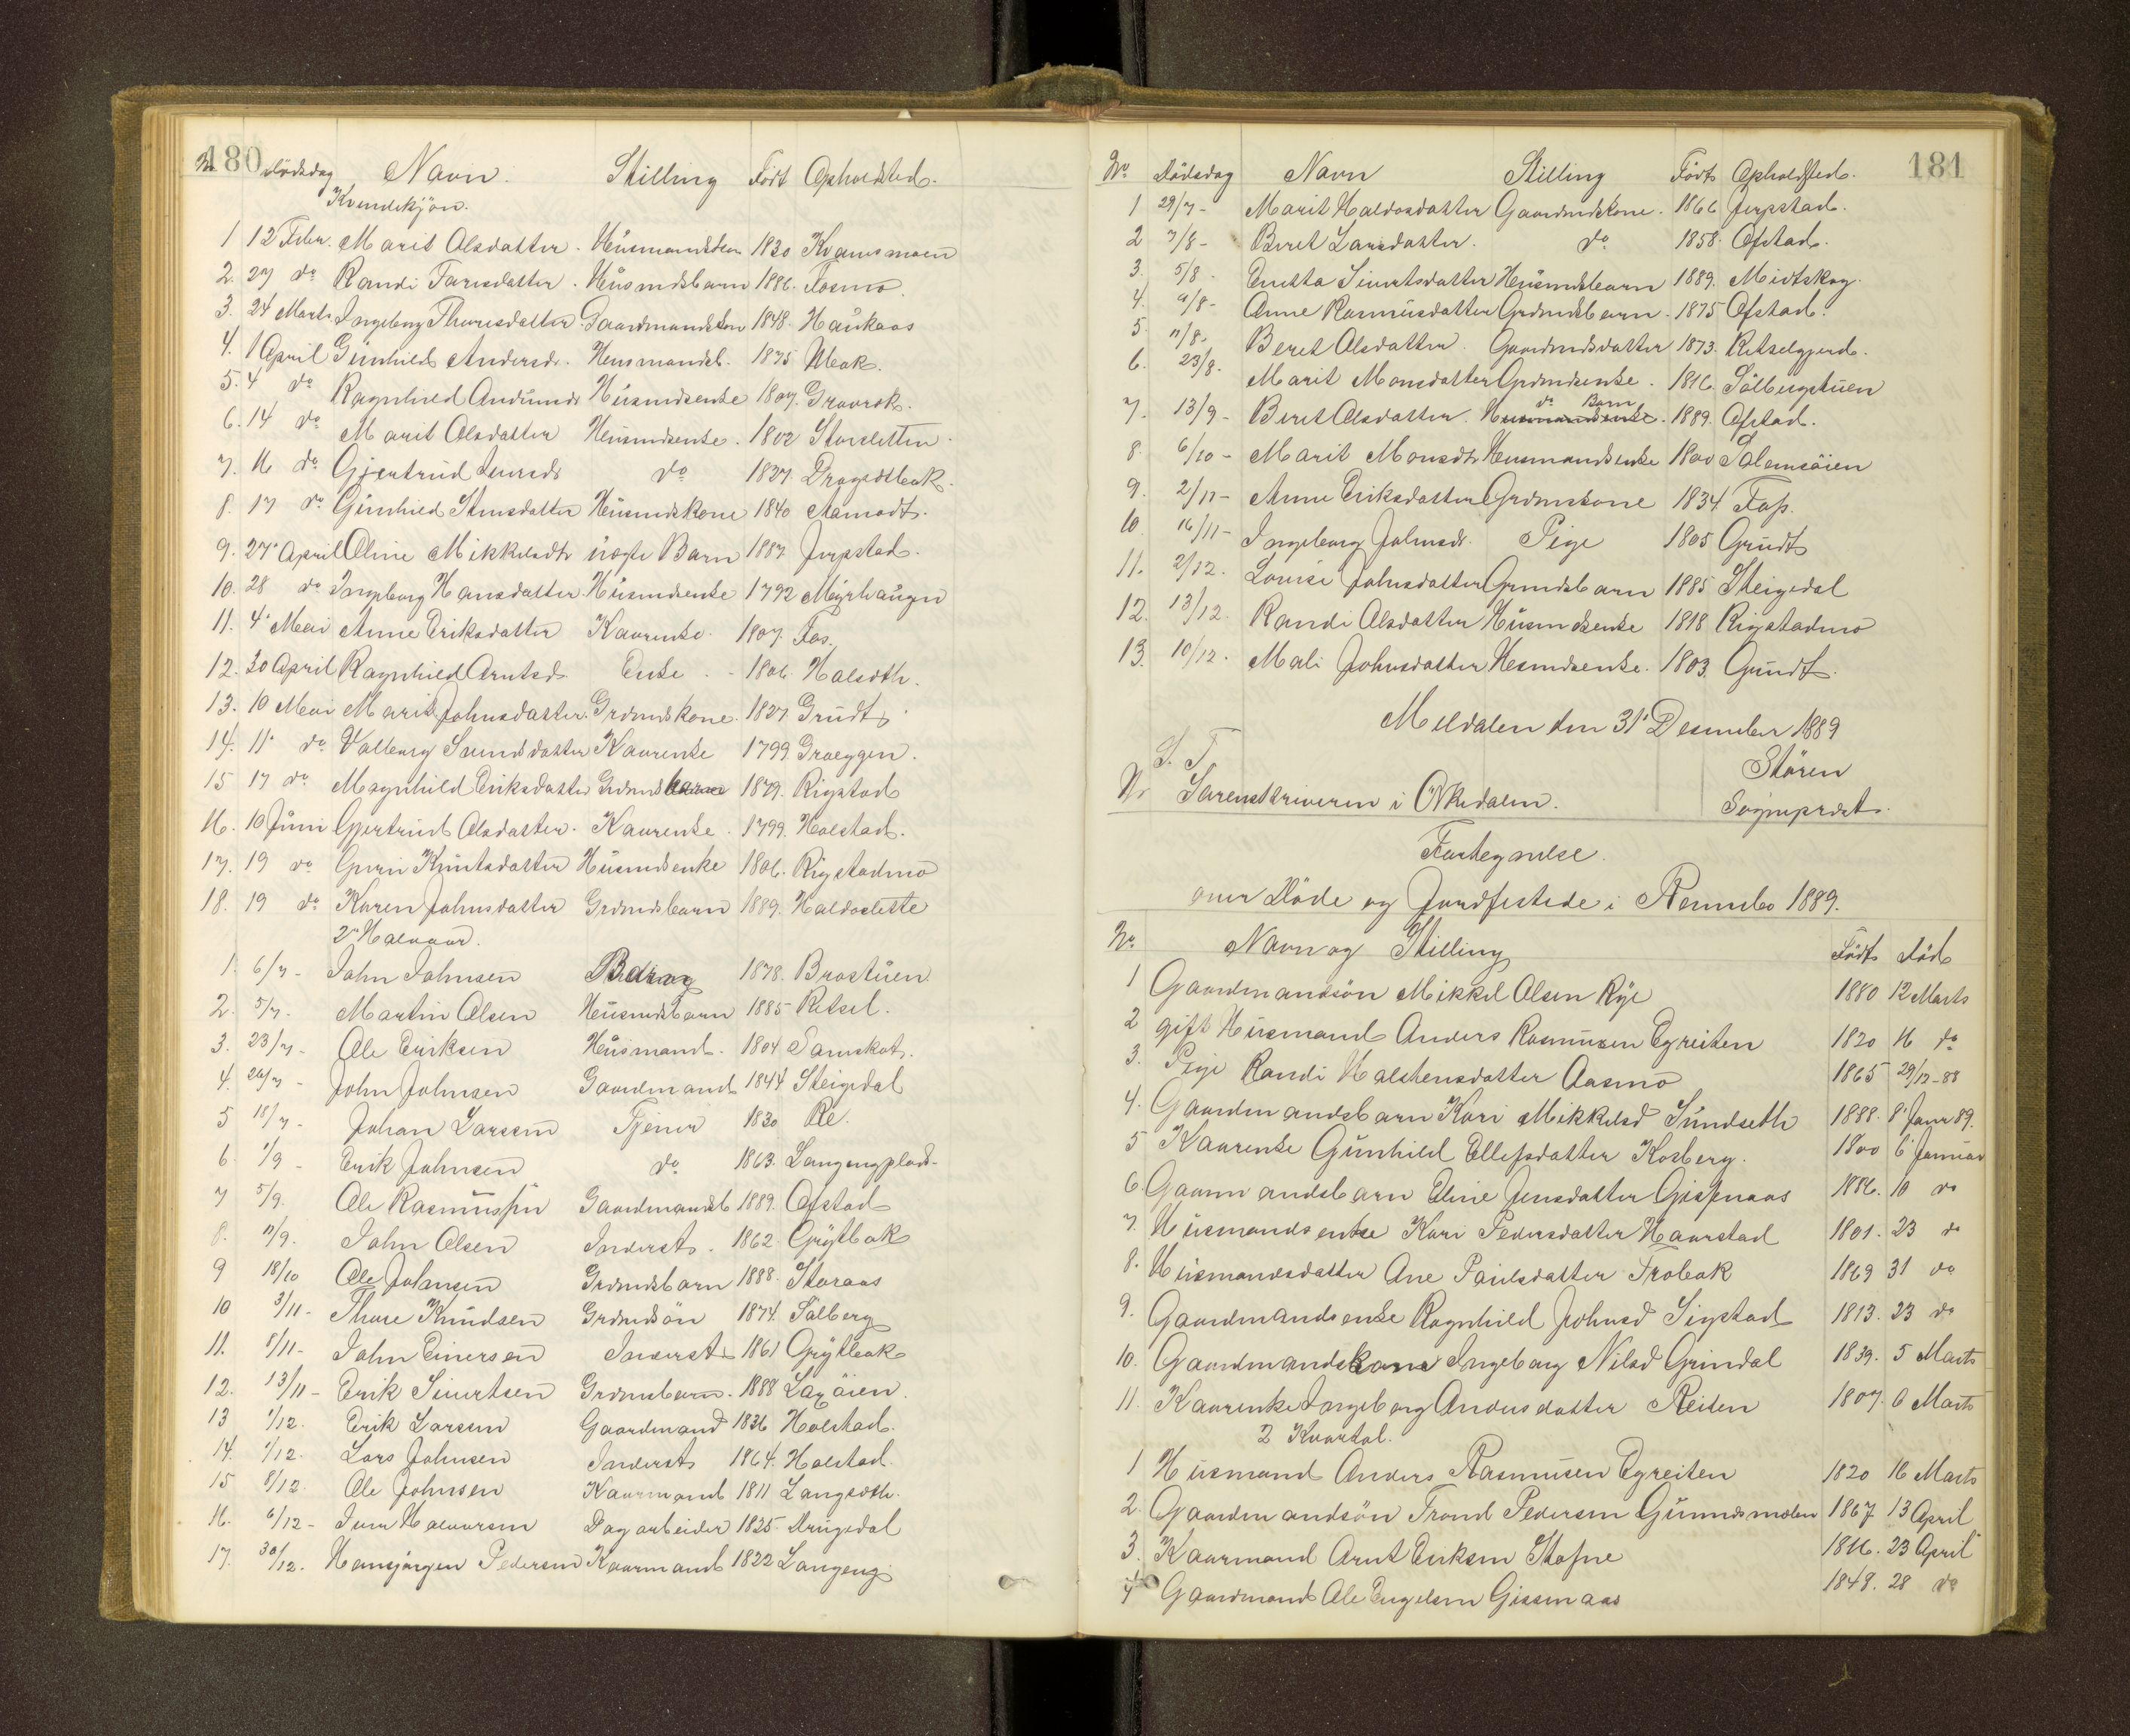 180
No Dødsdag Navn. Stilling Født Opholdsted.
Kvindekjøn.
1 12 Febr. Marit Olsdatter. Husmandskon 1830 Kvamsmoen
2. 27 do Randi Farisdatter. Husmdsbarn 1886. Fosmo.
3. 24 Marts Ingeborg Thorisdatter Gaardmandskon 1848. Haukaas
4. 1 April Gunhild Andersdr. Husmandsb. 1875 Uleak.
5. 4 do Ragnhild Amundsdr Husmdsenke 1807. Gravrok.
6. 14 do Marit Olsdatter Husmdsenke. 1802 Storsletten.
7. 16 do Gjertrud Iversdr do 1827 Dragsetbak.
8. 17 do Gunhild Arnsdatter Husmdskone 1840 Aamodt.
9. 27 April Oline Mikkelsdtr uægte Barn 1887 Jerpstad.
10. 28 do Ingeborg Hansdatter Husmdsenke 1792 Myrhaugen
11. 4 Mai Anne Eriksdatter Kaarenke. 1807. Fos.
12. 30 April Ragnhild Arntsd. Enke. - 1806 Halseth.
13. 10 Mai Marit Johnsdatter. Grdmdskone. 1827 Grudt
14. 11 do Valborg Sivertsdatter Kaarenke 1799 Græggen.
15 17 do Magnhild Eriksdatter Grdmdsbarn 1879. Rigstad
16. 10 Juni Gjertrud Olsdatter. Kaarenke. 1799. Holstad.
17. 19 do Guri Knutsdatter Husmdsenke 1806. Rigstadmo
18. 19 do Karen Johnsdatter Grdmdsbarn 1889. Haldoslette
2 Halvaar.
1. 6/7 - John Johnsen 1878. Brostuen
2. 5/7. Martin Olsen Husmdsbarn 1885 Retsel.
3. 23/7 - Ole Eriksen Husmand. 1804 Damskot.
4. 26/7 - John Johnsen Gaardmand 1844 Steigedal
5 18/7 - Johan Larsen Tjener 1830 Re.
6. 1/9 - Erik Johnsen do 1863. Langengplads.
7 5/9. Ole Rasmussen Gaardmandsb 1889. Ofstad
8. 11/9. John Olsen Inderst. 1862 Grytbak
9 18/10 Ole Johnsen Grdmdsbarn 1888. Storaas
10 3/11 - Thore Knudsen Grdmdsøn 1874. Solberg
11. 8/11 - John Einersen Inderst 1861 Grytbak
12. 13/11 - Erik Sivertsen Grdmdsbarn. 1888 Laxøien.
13 1/12. Erik Larsen Gaardmand 1836 Holstad.
14. 1/12. Lars Johnsen Inderst 1864. Holstad
15 8/12. Ole Johnsen Kaarmand 1811 Langseth.
16. 6/12 - Iver Halvorsen Dagarbeider 1825. Drugsdal
17. 30/12. Hansjørgen Pedersen Kaarmand 1822 Langeng
181
No Dødsdag Navn Stilling Født Opholdsted.
1 29/7 - Marit Haldosdatter Gaardmdskone. 1866 Jerpstad.
2 7/8 - Beret Larsdatter. do 1858. Ofstad.
3. 5/8 - Enetta Sivertsdatter Husmdsbarn 1889. Midtskog.
4. 9/8 - Anne Rasmusdatter Grdmdsbarn. 1875 Ofstad.
5 11/8. Beret Olsdatter. Gaardmdsdatter 1873. Retselgjerd.
6. 23/8. Marit Monsdatter Grdmdsenke. 1816. Solbergstuen
do Barn
7. 13/9 - Beret Olsdatter. Husmandsenke. 1889. Ofstad.
8. 6/10 - Marit Monsdtr Husmandsenke 1800 Holemsøien
9. 2/11 - Anne Eriksdatter Grdmskone 1834 Foss.
10 16/11 - Ingeborg Johnsdr. Pige 1805 Grudt
11. 2/12. Lovise Johnsdatter Grmdsbarn 1885 Steigedal
12. 13/12. Randi Olsdatter Husmdsenke 1818 Rigstadmo
13. 10/12. Mali Johnsdatter Husmdsenke. 1803. Grudt.
Meldalen den 31 Desember 1889
S. T. Støren
Hr Sorenskriveren i Orkedalen. Sogneprest.
Fortegnelse.
over Døde og Jordfestede i Rennebo 1889.
No Navn og Stilling Født Død
1 Gaardmandsøn Mikkel Olsen Rye 1880 12 Marts
2 gift Husmand Anders Rasmusen Egreiten 1820 16 do
3. Pige Randi Halstensdatter Aasmo 1865 29/12-88
4. Gaardmandsbarn Kari Mikkelsd Sundseth 1888. 8 Janr 89.
5 Kaarenke Gunhild Ellefsdatter Kosberg. 1800 6 Januar
6. Gaarmandsbarn Eline Jensdatter Gisnaas 1886. 10 do
7. Husmandsenke Kari Pedersdatter Haarstad 1801. 23 do
8. Husmandsdatter Ane Paulsdatter Trobak 1869 31 do
9. Gaardmandsenke Ragnhild Johnsd Sigstad 1813. 23 do
10. Gaardmandskone Ingeborg Nilsd Grindal 1839. 5 Marts
11. Kaarenke Ingeborg Andersdatter Reiten 1807. 6 Marts
2 Kvartal.
1 Husmand Anders Rasmusen Egreiten 1820 16 Marts
2. Gaardmandsøn Trond Pedersen Gunnesmoen 1867. 13 April
3. Kaarmand Arnt Eriksen Stafne 1816. 23 April
4 Gaardmand Ole Engelsen Gissenaas 1848. 28 do